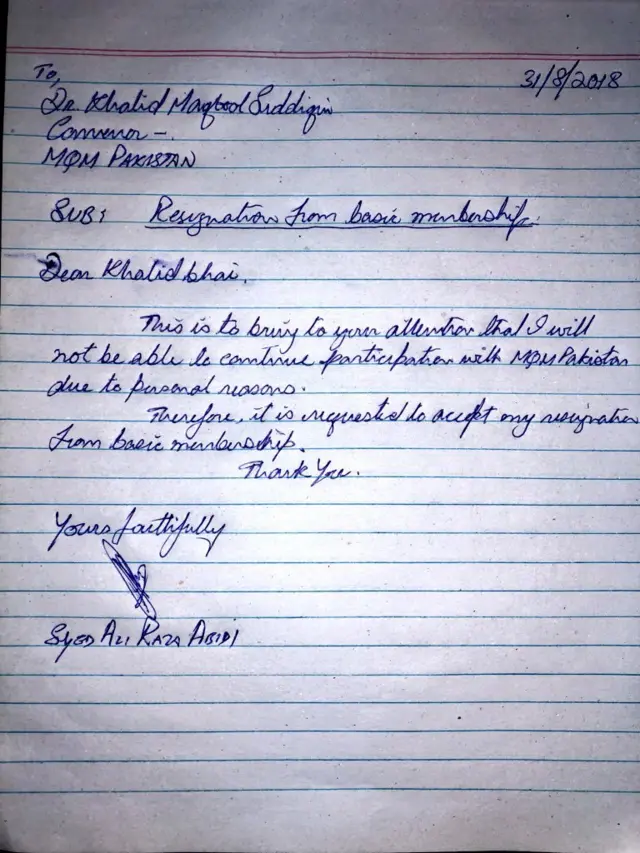 To,
31/8/2018
Dr. Khalid Maqbool Siddiqui
Convenor –
MQM PAKISTAN
SUB: Resignation from basic membership.
Dear Khalid bhai,
This is to bring to your attention that I will
not be able to continue participation with MQM Pakistan
due to personal reasons.
Therefore, it is requested to accept my resignation
from basic membership.
Thank You.
Yours faithfully
SYED ALI RAZA ABIDI